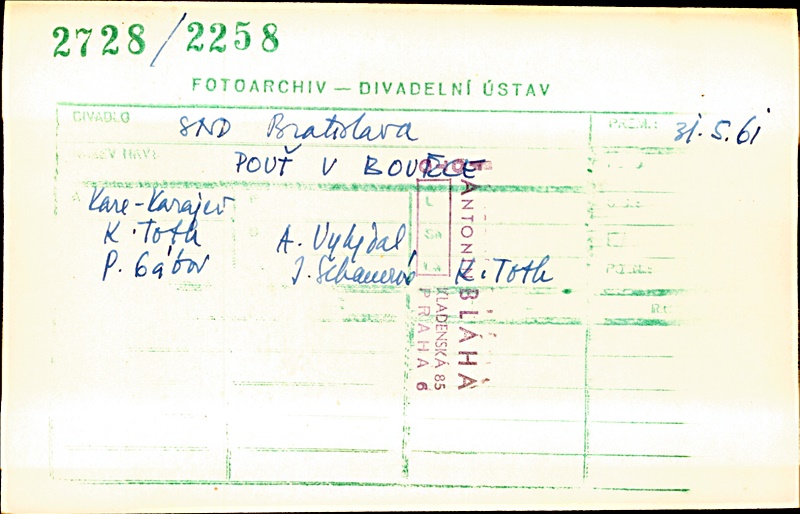 2728/2258
FOTOARCHIV — DIVADELNÍ ÚSTAV
DIVADLO SND Bratislava 31.5.61
NÁZEV HRY POUŤ V BOUŘCE
Kare-Karajev
K. Toth A. Vykydal
P. Gábor J. Schanerová K. Toth
ANTONÍN BLÁHA
KLADENSKÁ 85
PRAHA 6